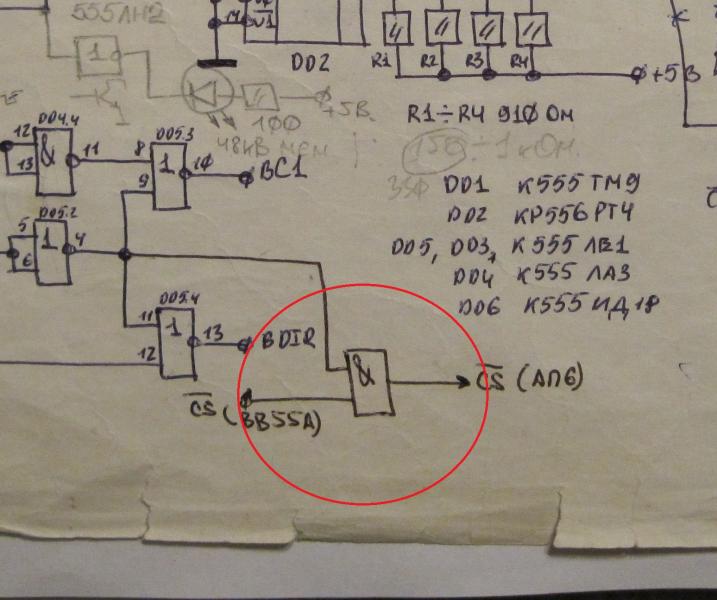 555ЛН2
1
14
V1
DD2
R1 R2 R3 R4
+5В
100
+5В.
48кВ мем
R1÷R4 910 Ом
150 ÷ 1 кОм.
350
DD1 К555ТМ9
DD2 КР556РТ4
DD5, DD3, К555ЛЕ1
DD4 К555ЛА3
DD6 К555ИД18
DD4.4
12
13
&
11
DD5.3
8
9
1
10
BC1
DD5.2
5
6
1
4
DD5.4
11
12
1
13
BDIR
&
CS (ВВ55А)
CS (АП6)